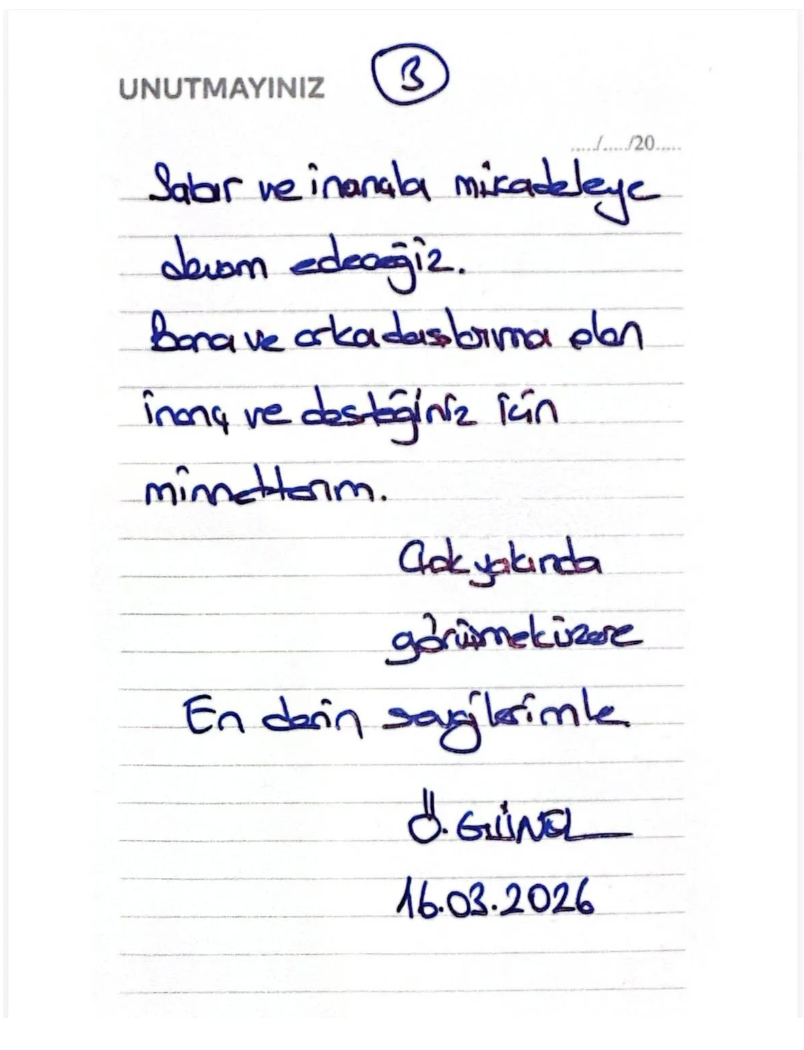 UNUTMAYINIZ 3
...../...../20.....
Sabır ve inançla mücadeleye
devam edeceğiz.
Bana ve arkadaşlarıma olan
inanç ve desteğiniz için
minnettarım.
Çok yakında
görüşmek üzere
En derin sevgilerimle
Ö. GÜNEL
16.03.2026